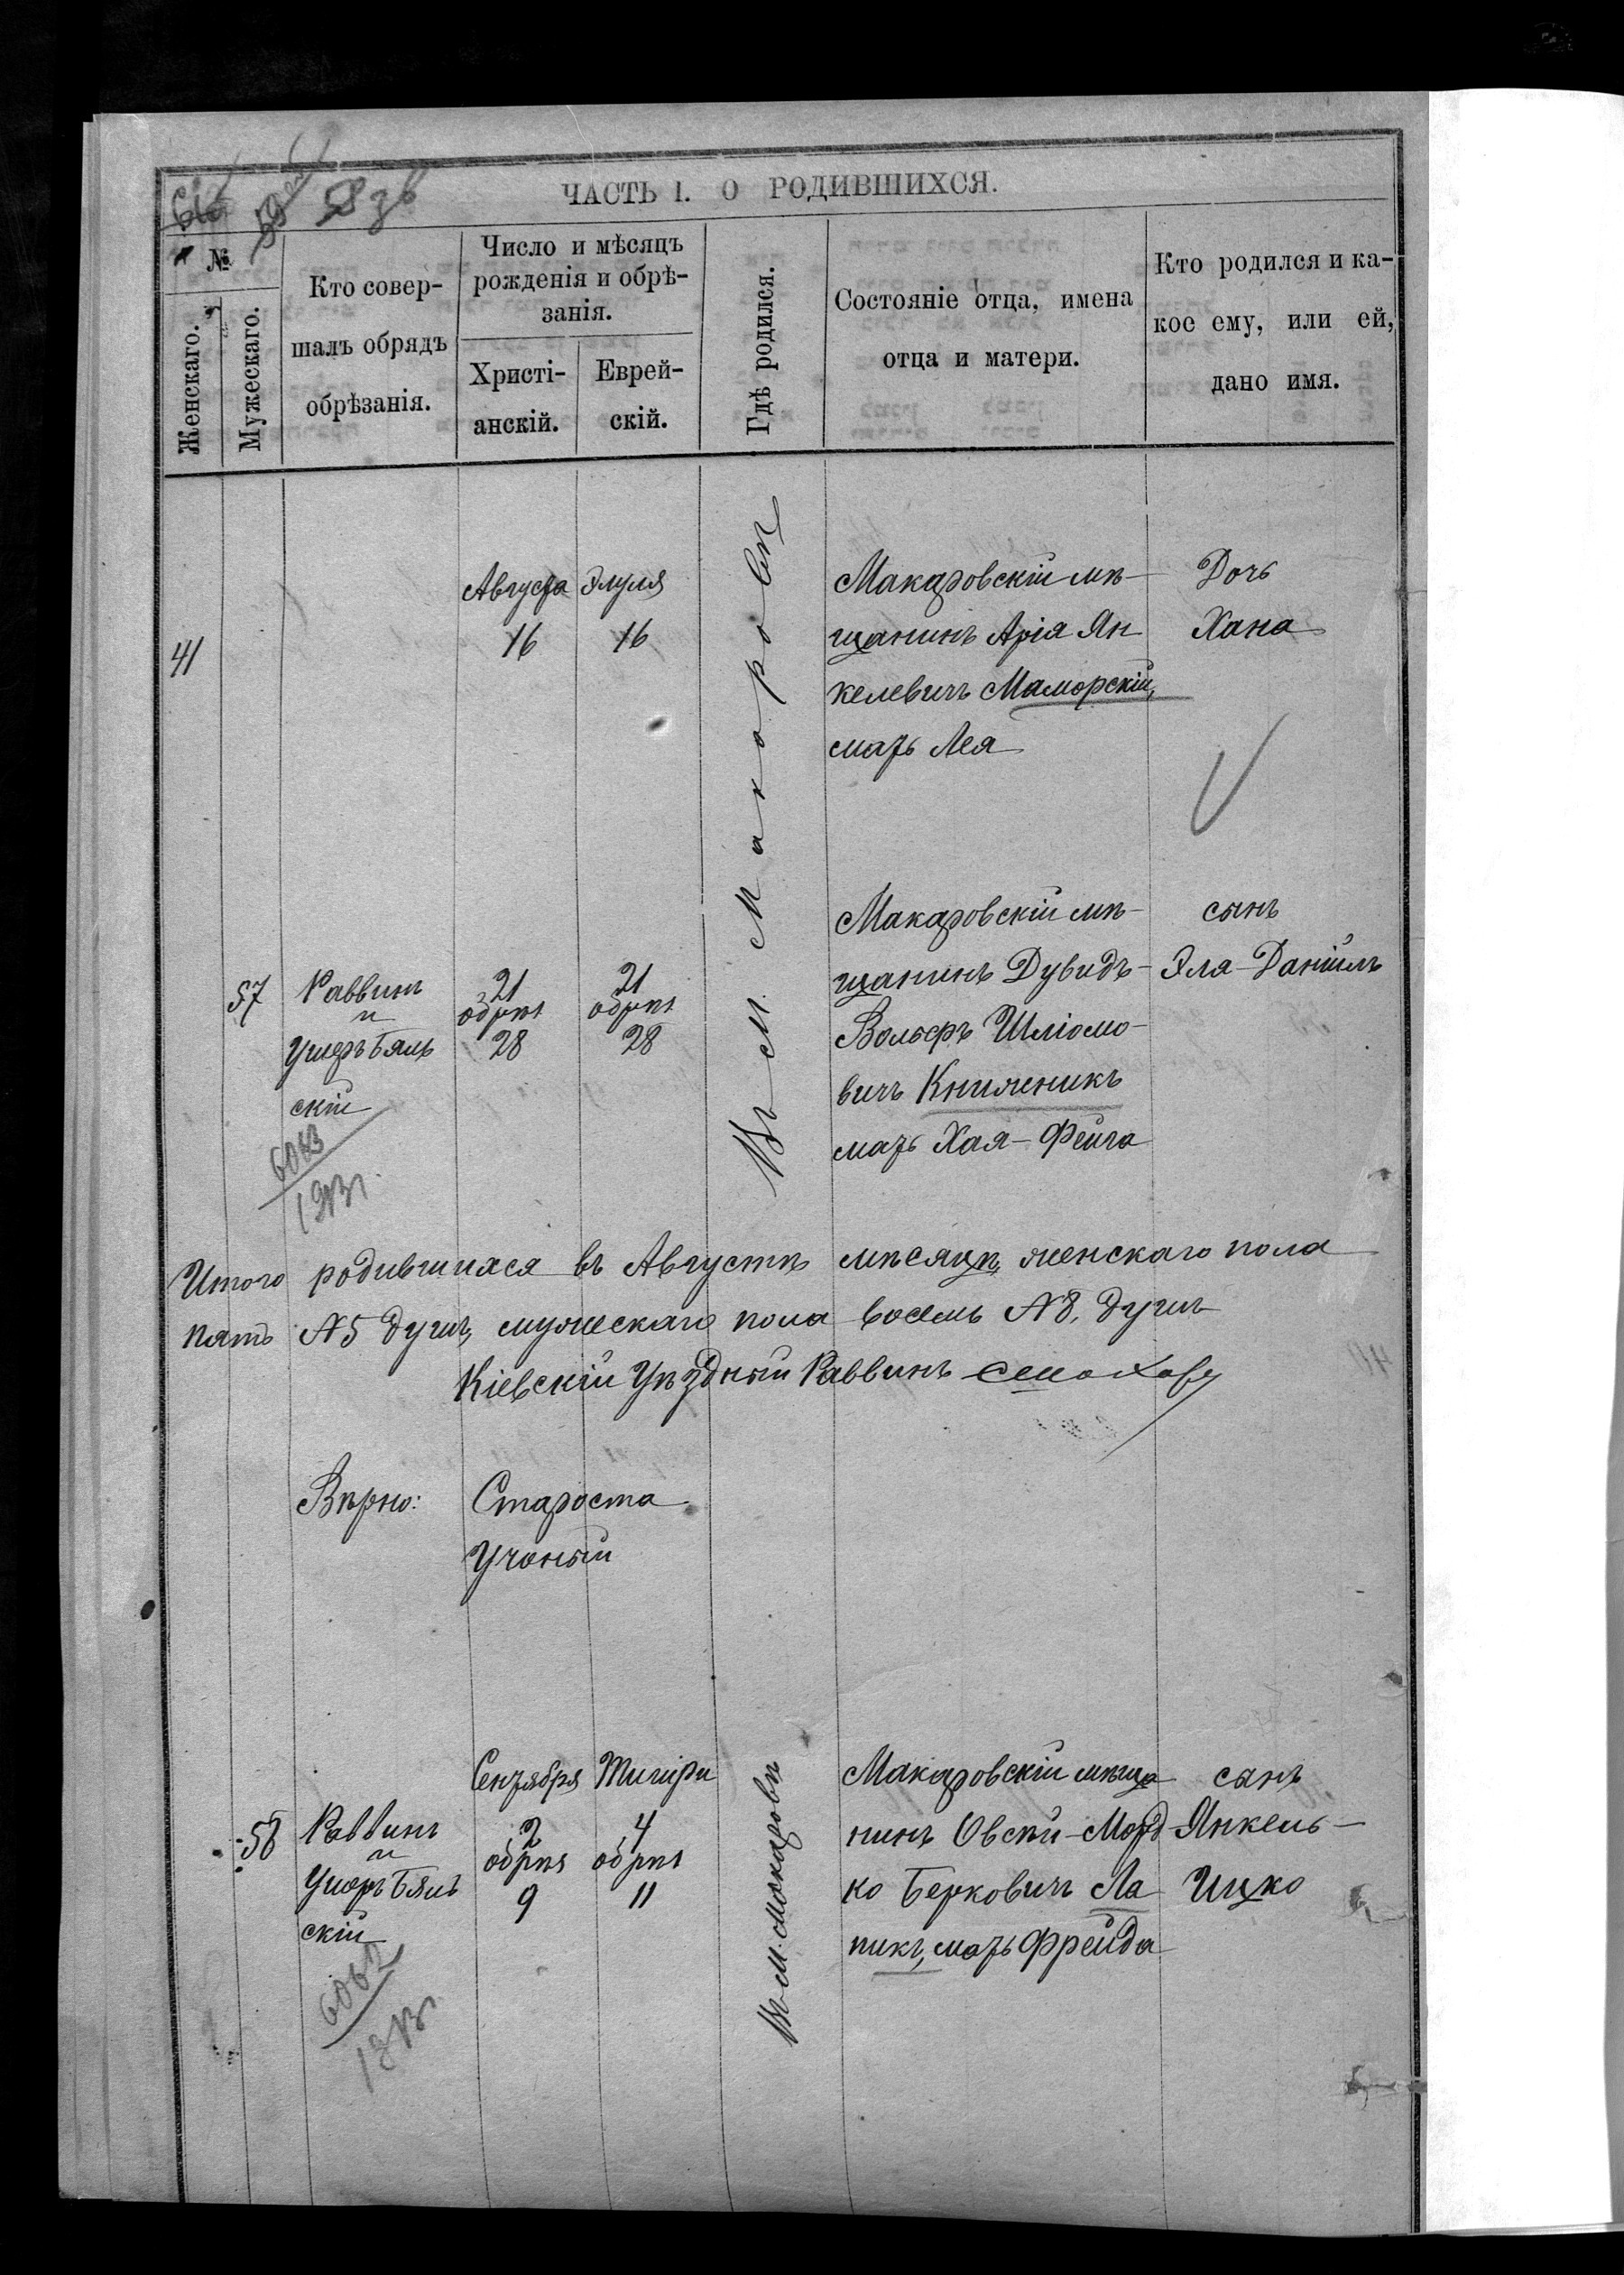 58 зв
ЧАСТЬ I. О РОДИВШИХСЯ.
№
Женскаго.
Мужескаго.
Кто совер-
шалъ обрядъ
обрѣзанія.
Число и мѣсяцъ
рожденія и обрѣ-
занія.
Христі-
анскій.
Еврей-
скій.
Гдѣ родился.
Состояніе отца, имена
отца и матери.
Кто родился и ка-
кое ему, или ей,
дано имя.
41
Августа
16
Элуля
16
Въ м. Макаровѣ
Макаровскій мѣ-
щанинъ Арія Ян
келевичъ Маморскій,
мать Лея
Дочь
Хана
57
Раввинъ
и
Ушеръ Бяль
скій
21
обрѣз
28
21
обрѣз
28
Макаровскій мѣ-
щанинъ Дувидъ-
Вольфъ Шліомо-
вичъ Книжникъ
мать Хая-Фейга
сынъ
Эля-Даніилъ
6063
Итого родившихся въ Августѣ мѣсяцѣ, женскаго пола
пять №5 душъ, мужескаго пола восемь №8, душъ
Кіевскій Уѣздный Раввинъ
Вѣрно: Староста
Учоный
58
Раввинъ
и
Ушеръ Бяль
скій
Сентября
2
обрѣз
9
Тишри
4
обрѣз
11
Въ м. Макаровѣ
Макаровскій мѣща
нинъ Овсѣй-Морд
ко Берковичъ Ла
пикъ, мать Фрейда
сынъ
Янкель-
Ицко
6062